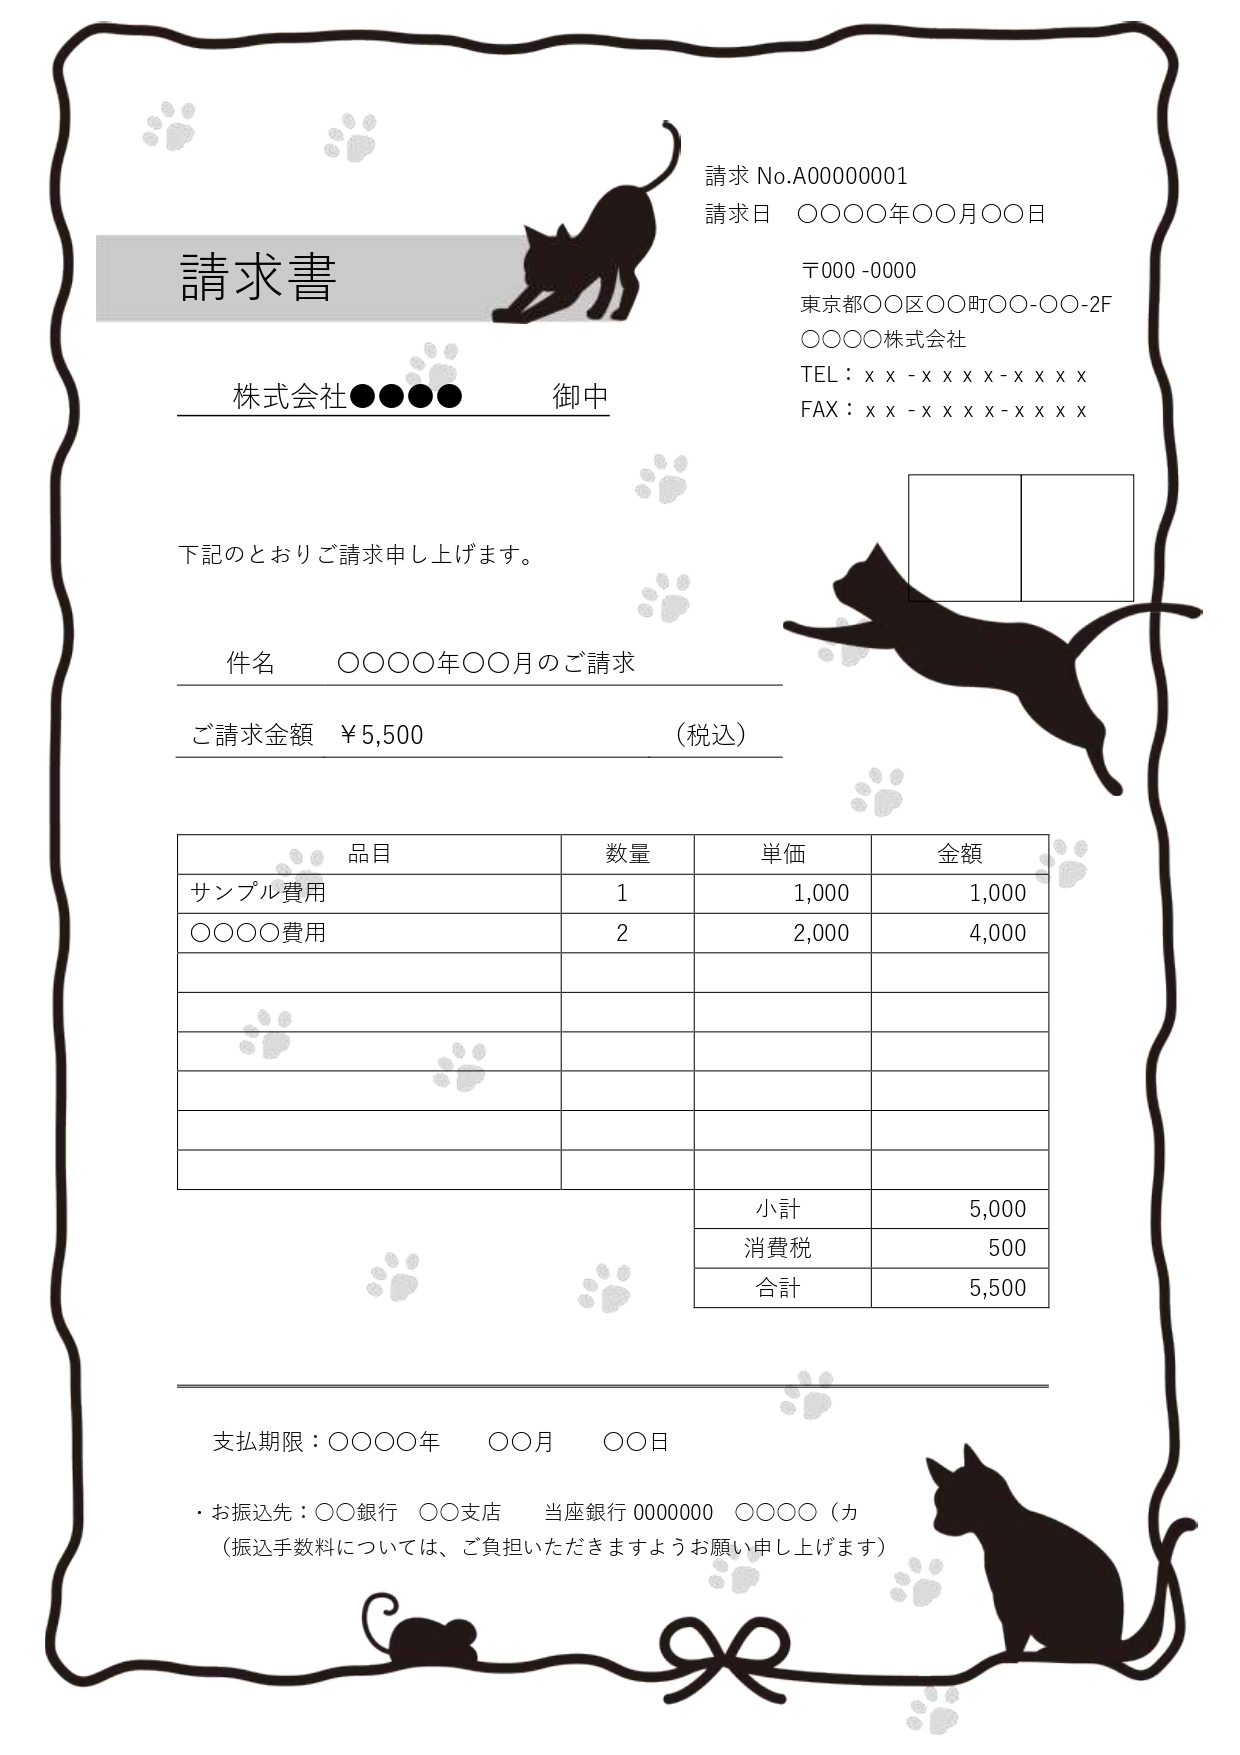 請求 No.A00000001
請求日　〇〇〇〇年〇〇月〇〇日
〒000 -0000
東京都〇〇区〇〇町〇〇-〇〇-2F
〇〇〇〇株式会社
TEL：ｘｘ -ｘｘｘｘ-ｘｘｘｘ
FAX：ｘｘ -ｘｘｘｘ-ｘｘｘｘ
請求書
株式会社●●●●　　　御中
下記のとおりご請求申し上げます。
件名　〇〇〇〇年〇〇月のご請求
ご請求金額　￥5,500　（税込）
品目　数量　単価　金額
サンプル費用　1　1,000　1,000
〇〇〇〇費用　2　2,000　4,000
小計　5,000
消費税　500
合計　5,500
支払期限：〇〇〇〇年　　〇〇月　　〇〇日
・お振込先：〇〇銀行　〇〇支店　　当座銀行 0000000　〇〇〇〇（カ
（振込手数料については、ご負担いただきますようお願い申し上げます）